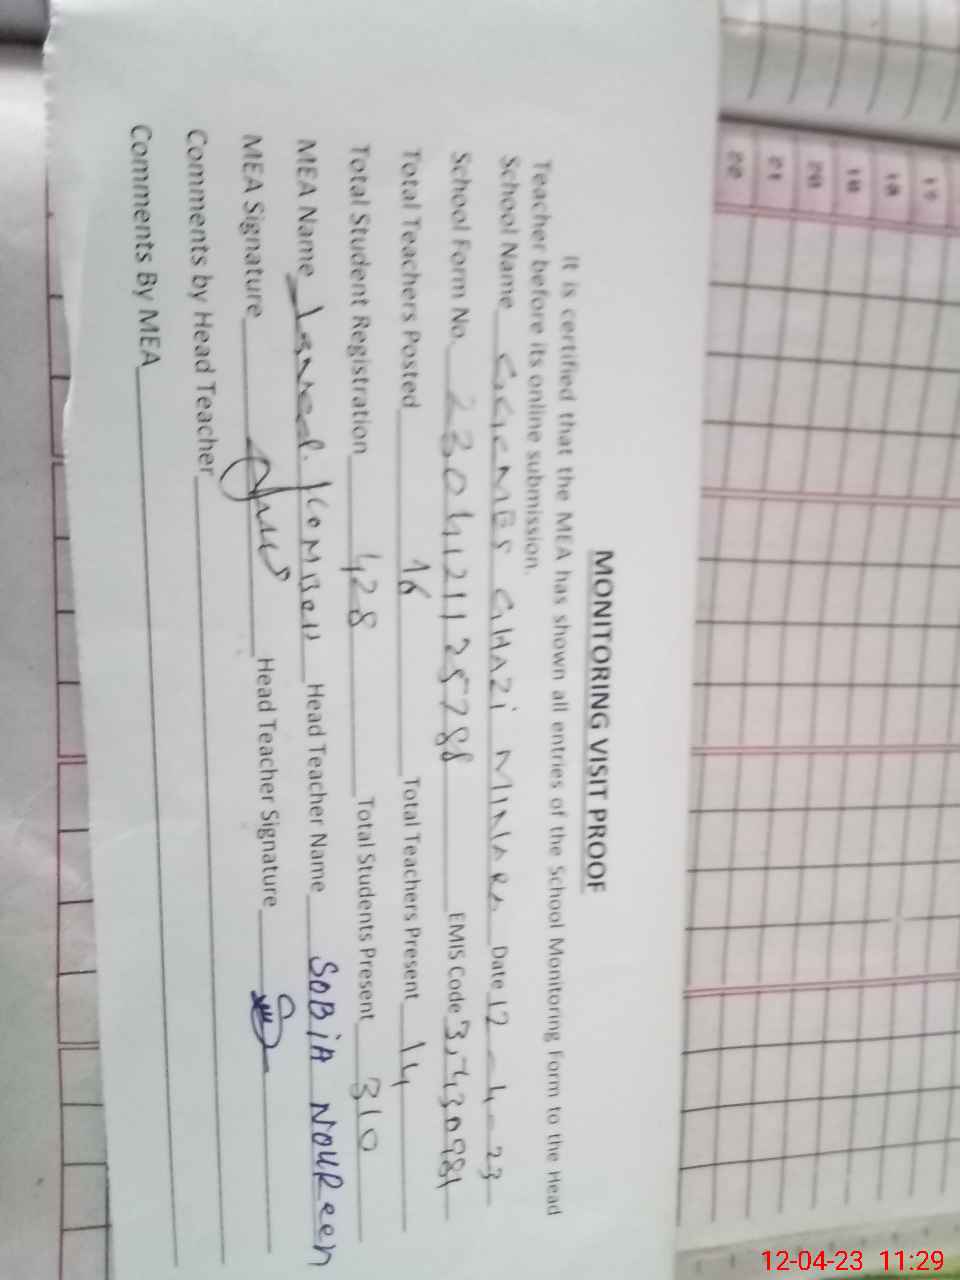 MONITORING VISIT PROOF
It is certified that the MEA has shown all entries of the School Monitoring Form to the Head
Teacher before its online submission.
School Name GGCMES GHAZi MINARA Date 12-4-23
School Form No. 2304121125788 EMIS Code
Total Teachers Posted 16 Total Teachers Present 14
Total Student Registration 428 Total Students Present 310
MEA Name Head Teacher Name SOBiA NOUREEN
MEA Signature Head Teacher Signature
Comments by Head Teacher
Comments By MEA
19
18
20
21
22
12-04-23 11:29